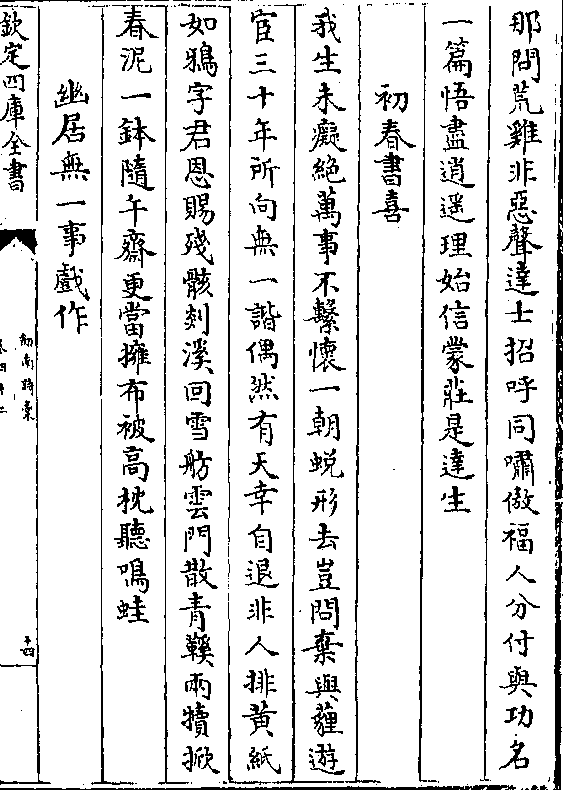 那問荒雞非惡聲達士招呼同嘯傲福人分付與功名
一篇悟盡逍遙理始信蒙莊是達生
初春書喜
我生未癡絶萬事不繫懷一朝蜕形去豈問棄與薶遊
宦三十年所向無一諧偶然有天幸自退非人排黄紙
如鴉字君恩賜殘骸剡溪回雪舫雲門散青鞵兩犢掀
春泥一鉢隨午齋更當擁布被高枕聽鳴蛙
幽居無一事戲作
欽定四庫全書
劒南詩稾
卷四十二
十四